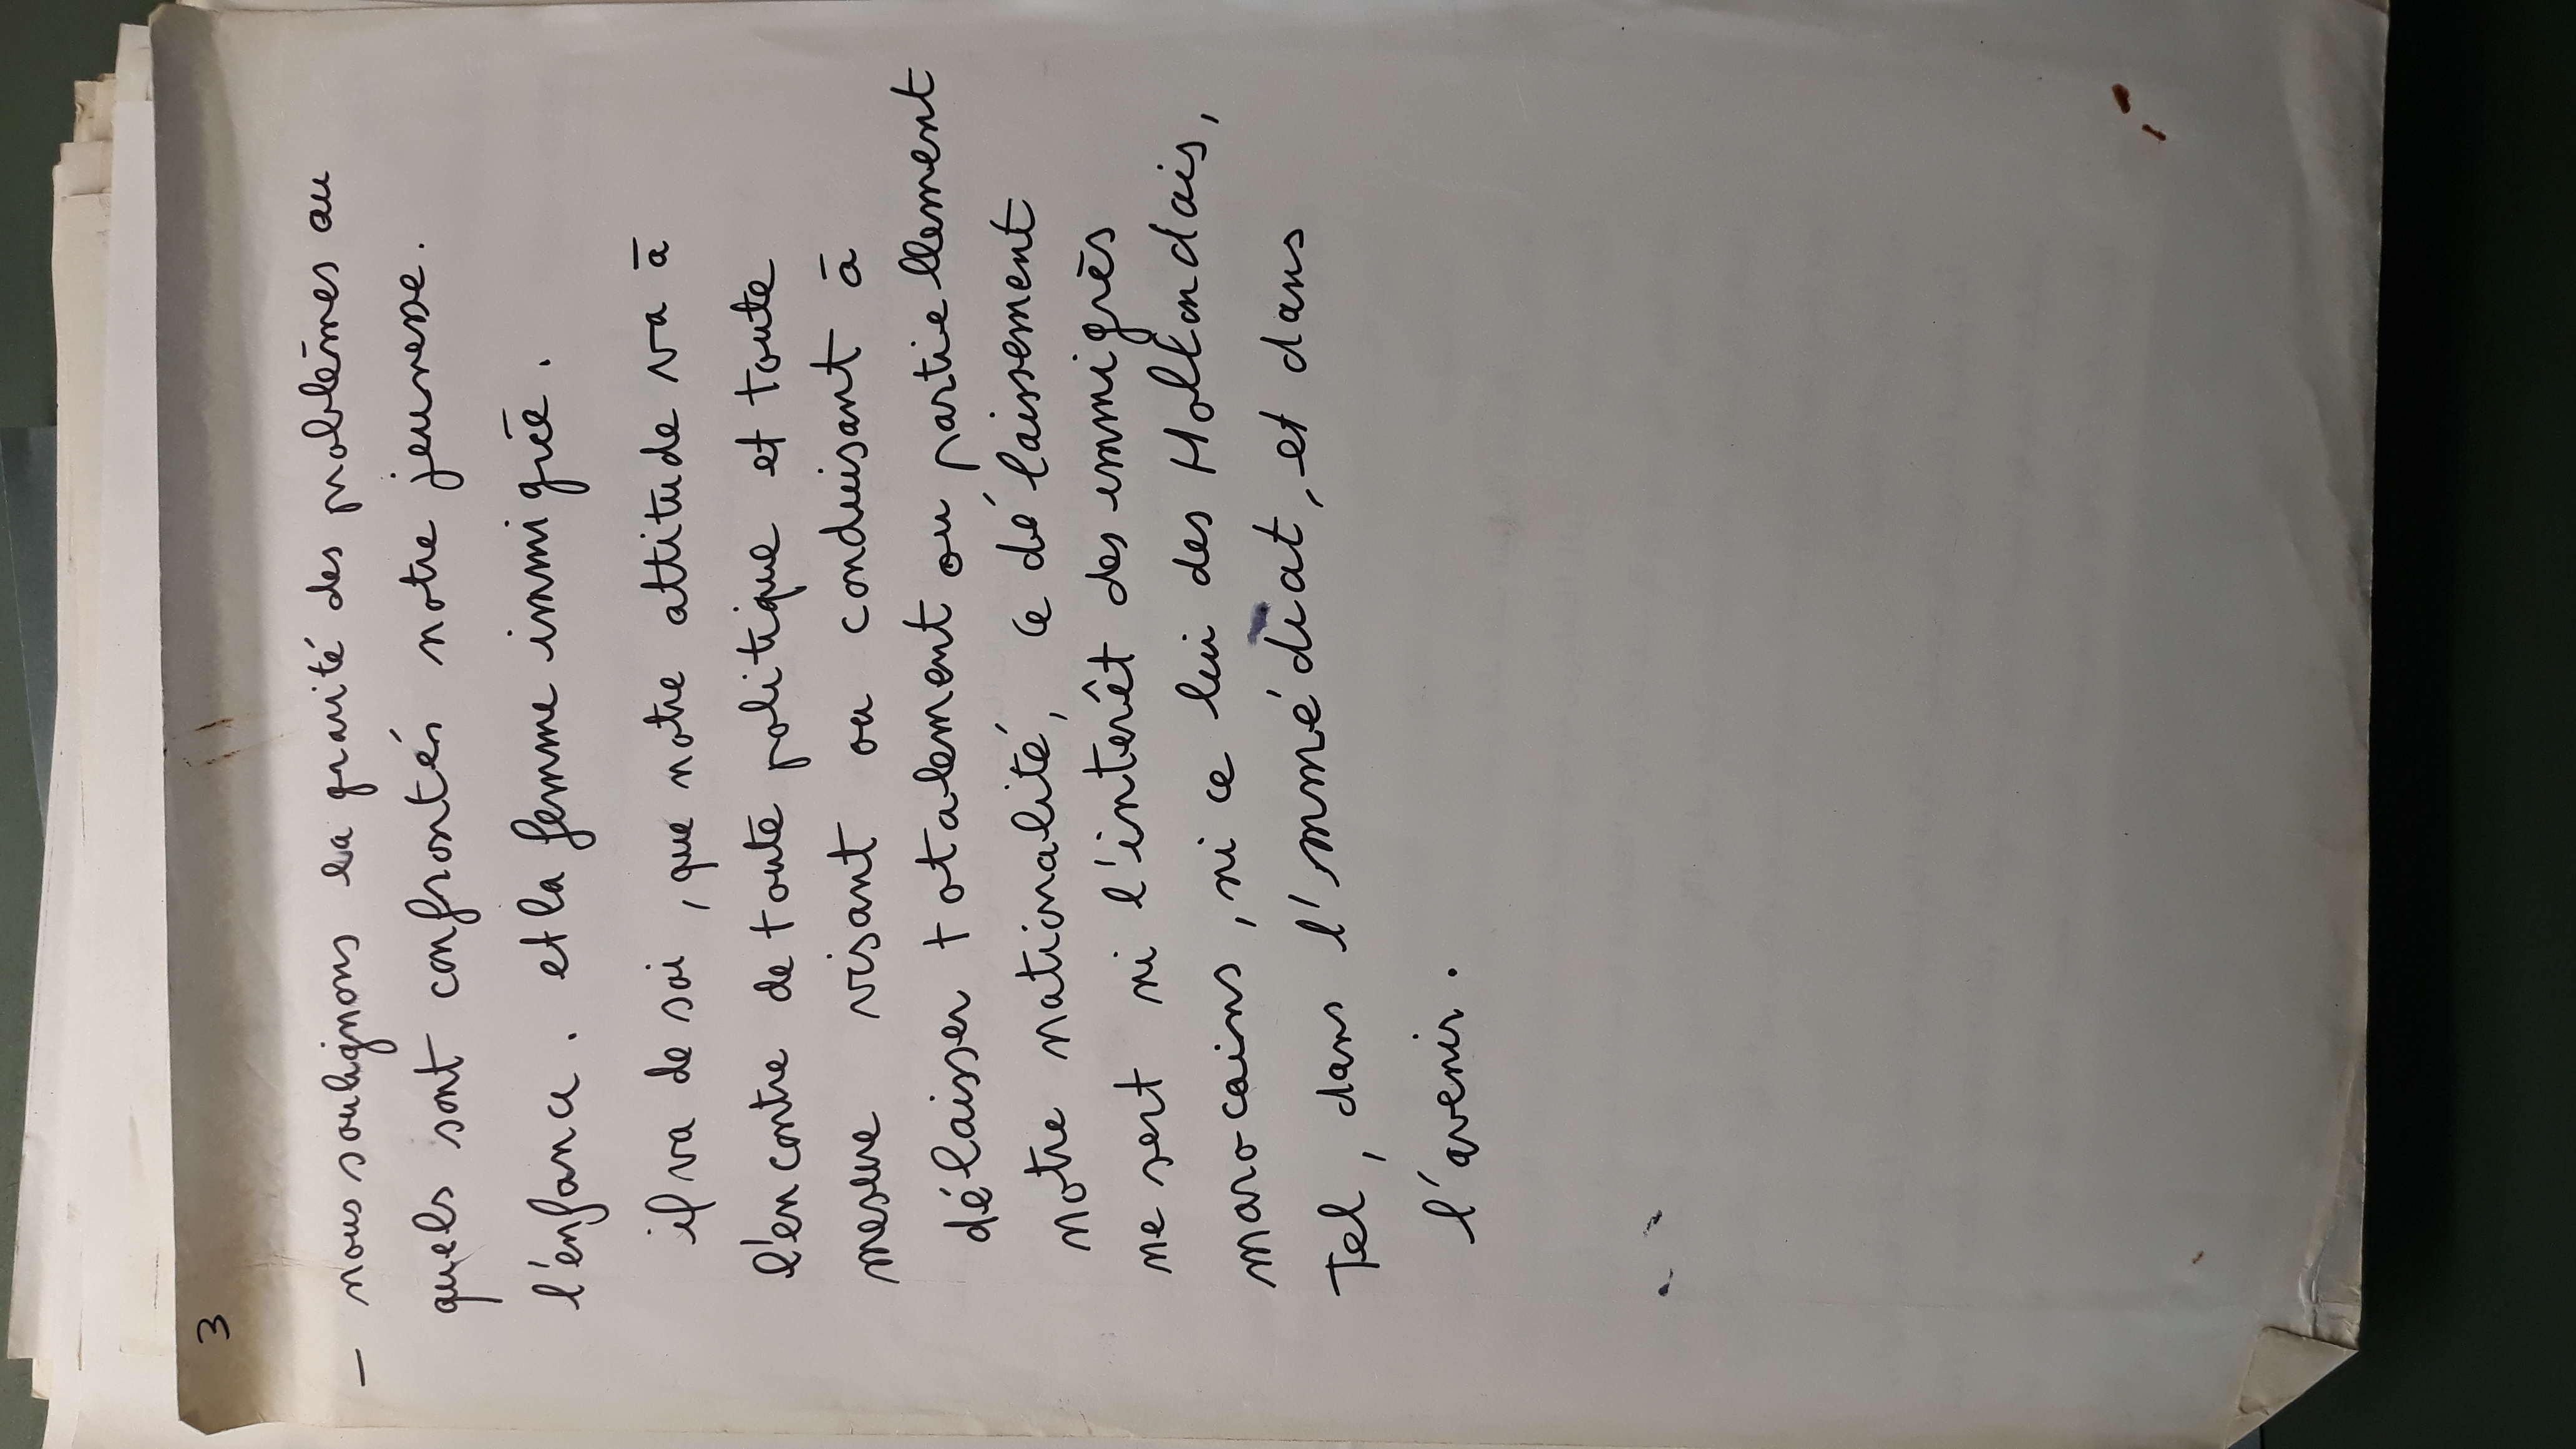 3
– nous soulignons la gravité des problèmes au
quels sont confrontés notre jeunesse.
l'enfance. et la femme immigrée.
il va de soi, que notre attitude va à
l'encontre de toute politique et toute
mesure visant ou conduisant à
délaisser totalement ou partiellement
notre nationalité, ce délaissement
ne sert ni l'intérêt des immigrés
marocains, ni ce lui des Hollandais,
Tel, dans l'immédiat, et dans
l'avenir.